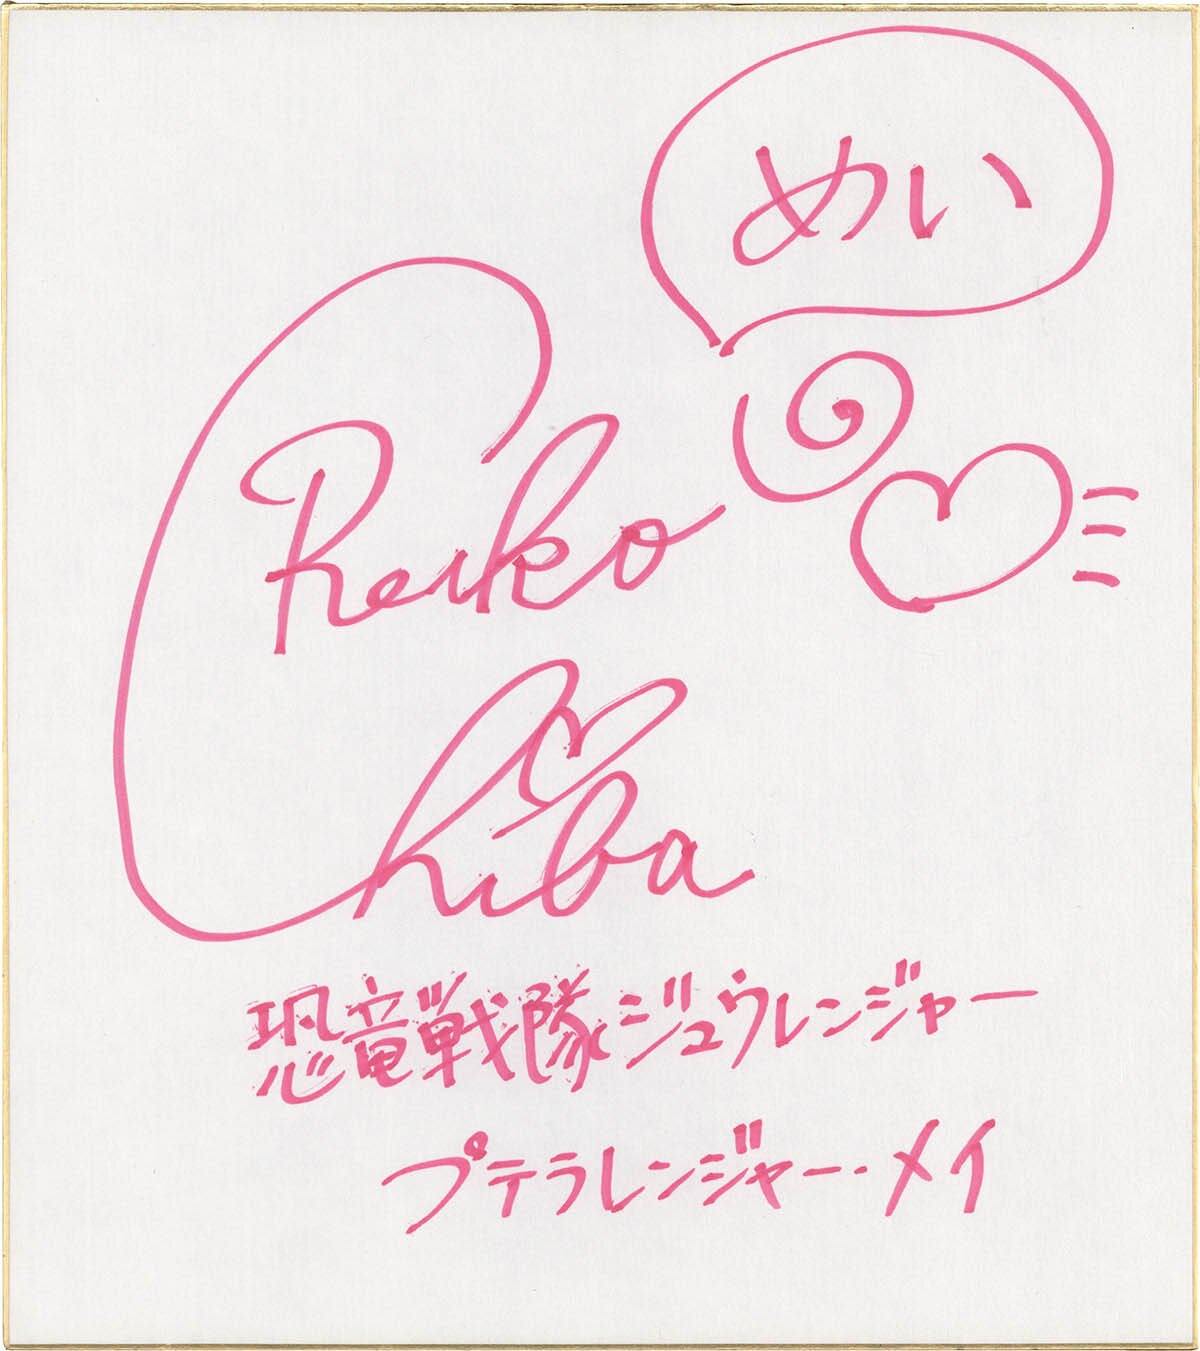 めい
Reiko
Chiba
恐竜戦隊ジュウレンジャー
プテラレンジャー・メイ